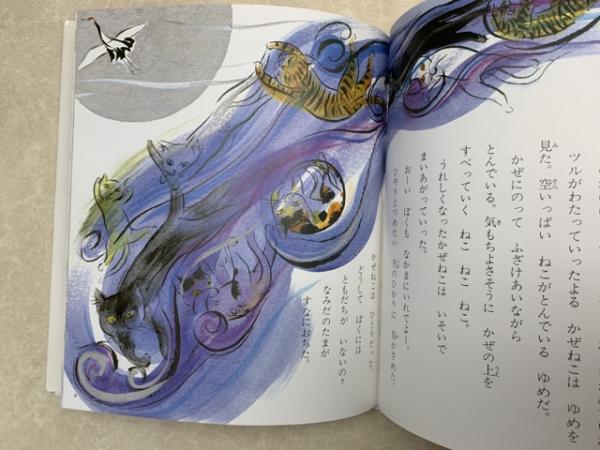 ツルがわたっていったよる　かぜねこは　ゆめを
見た。空いっぱい　ねこがとんでいる　ゆめだ。
かぜにのって　ふざけあいながら
とんでいる。気もちよさそうに　かぜの上を
すべっていく　ねこ　ねこ　ねこ。
うれしくなったかぜねこは　いそいで
まいあがっていった。
おーい　ぼくも　なかまにいれてよー。
ひやりとつめたい　月のひかりに　目がさめた。
かぜねこは　ひとりだった。
どうして　ぼくには
ともだちが　いないの？
なみだのたまが
すなにおちた。